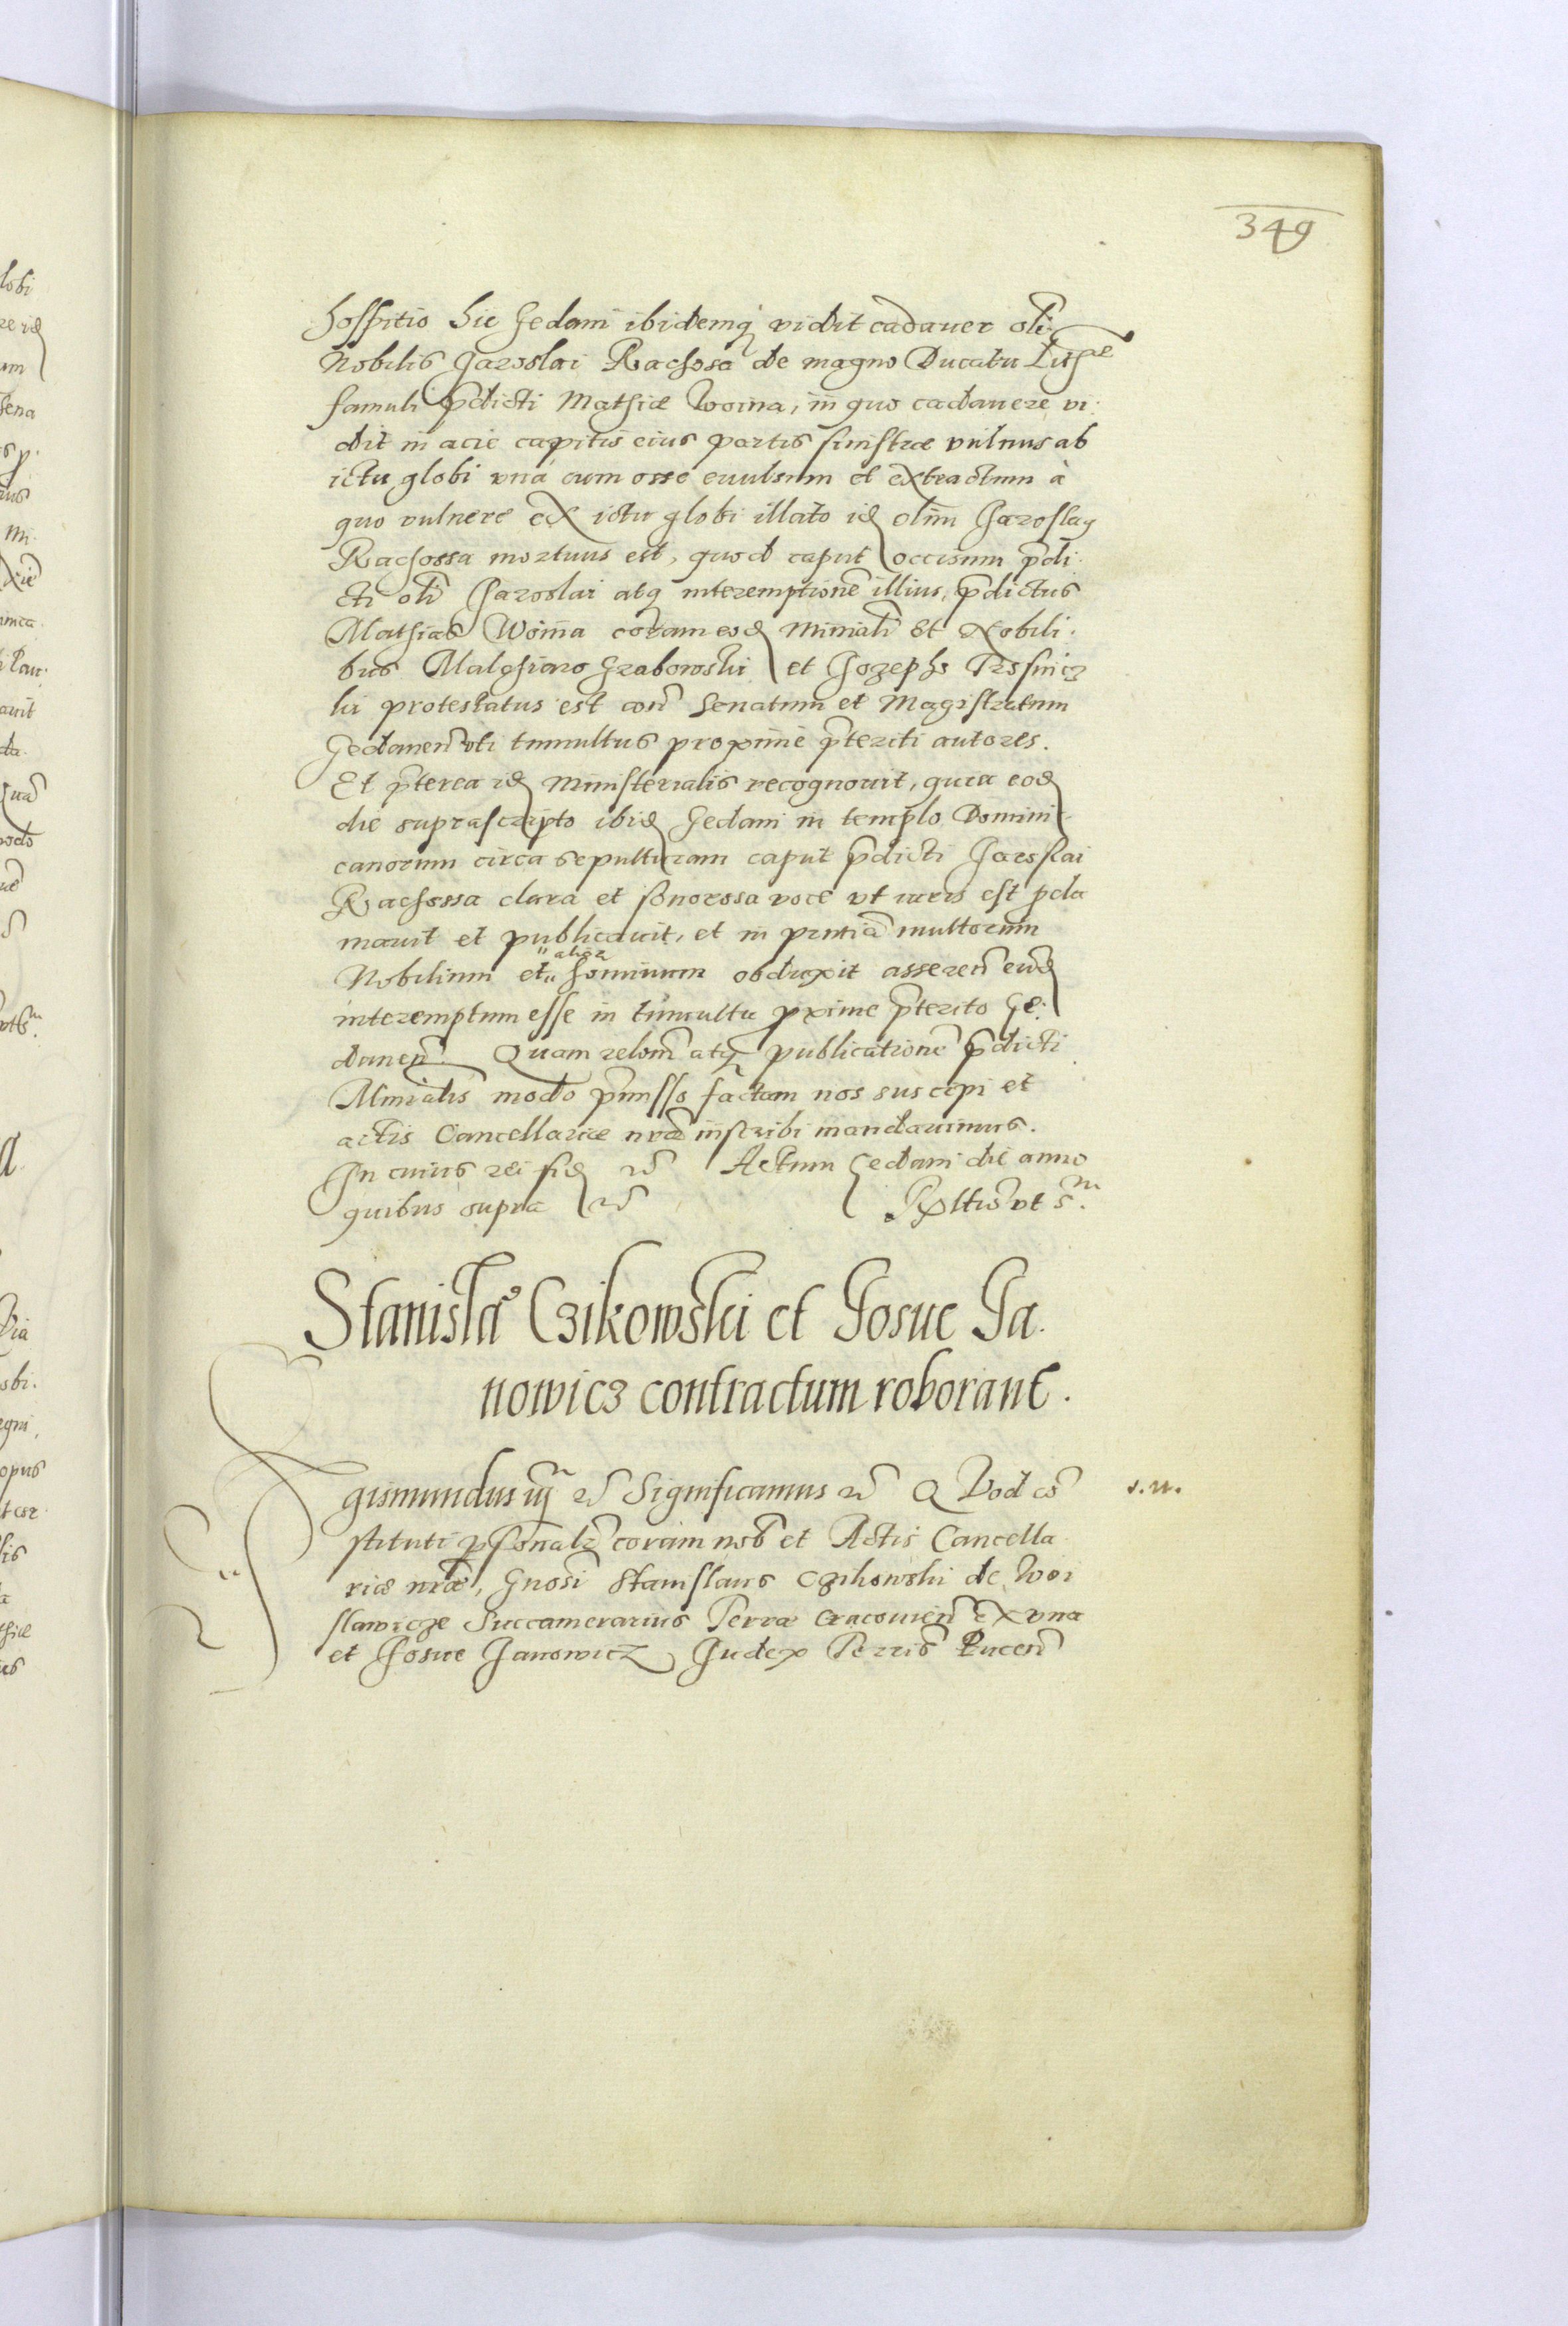 349
hospitio hic Gedani ibidemq̃ vidit cadauer oli͂
Nobilis Jaroslai Rachosa de magno Ducatu Lithae
famuli p͂dicti Mathiæ Woina, in quo cadauere vi-
dit in acie capitis eius partis sinistræ vulnus ab
ictu globi vná cum osse euulsum et extractum à
quo vulnere ex ictu globi illato id olim Jarosla9
Rachossa mortuus est, quod caput occisum p͂di-
cti oli͂ Jaroslai atq interemptione͂ illius, p͂dictus
Mathias Woina coram eod Min͂iali et Nobili-
bus Malchiaro Grabowski et Jozepho
ki protestatus est con͂ Senatum et Magistratum
Gedanen͂ vti tumultus proxime p͂teriti autores.
Et p͂terea id Ministerialis recognouit, quia eod
die suprascripto ibid Gedani in templo Domini-
canorum circa sepulturam caput p͂dicti Jaroslai
Rachossa clara et sonorossa voce vt iuris est p̱cla
mauit et publicauit, et in pn͂tia͂ multorum
Nobilium et alior hominum obduxit asseren͂ eund
interemptum esse in tumultu p̱xime p͂terito Ge-
danen͂. Quam relom͂ atq publicatione͂ p͂dicti
Min͂ialis modo p͂misso factam nos suscepi et
actis Cancellariæ nr͂æ inscribi mandauimus.
In cuius rei fid etc͂ Actum Gedani die anno
quibus supra etc͂ Rltio͂ vt s.
Stanisla9 Czikowski et Josue Ja-
nowicz contractum roborant.
gismundus iij etc͂ Significamus etc͂ QVod co͂
s. n.
stituti p̱sonalr͂ coram nob͂ et Actis Cancella
riæ nr͂æ, Gnosi͂ Stanislaus Czikowski de Woi
slawicze Succamerarius Terræ Cracouien͂ ex vna
et Josue Janowicz Judex Terris͂ Pucen͂